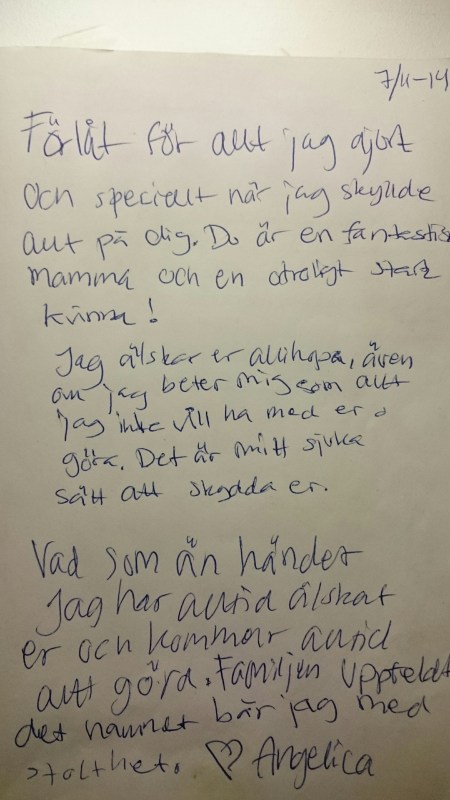 7/11-14
Förlåt för allt jag gjort
Och speciellt när jag skyllde
allt på dig. Du är en fantastis
mamma och en otroligt stark
kvinna!
Jag älskar er allihopa, även
om jag beter mig som att
jag inte vill ha med er a
göra. Det är mitt sjuka
sätt att skydda er.
Vad som än händer
Jag har alltid älskat
er och kommer alltid
att göra. Familjen Uppfeldt
det namnet bär jag med
stolthet. ♡ Angelica